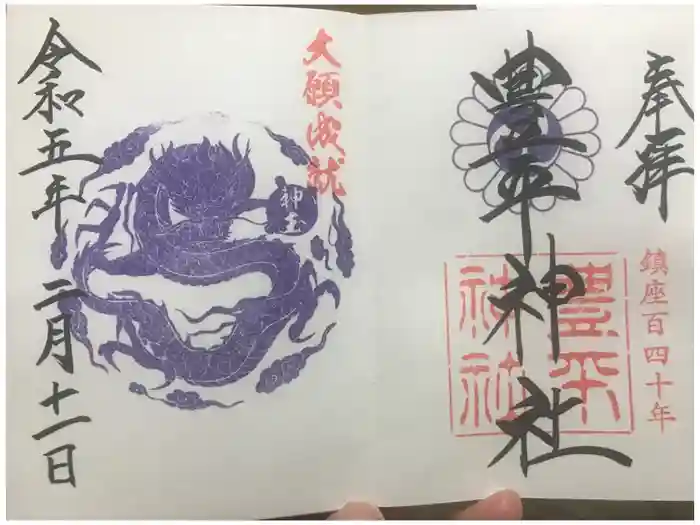 奉拝
鎮座百四十年
豊平神社
豊平
神社
大願成就
神玉
令和五年 二月十一日